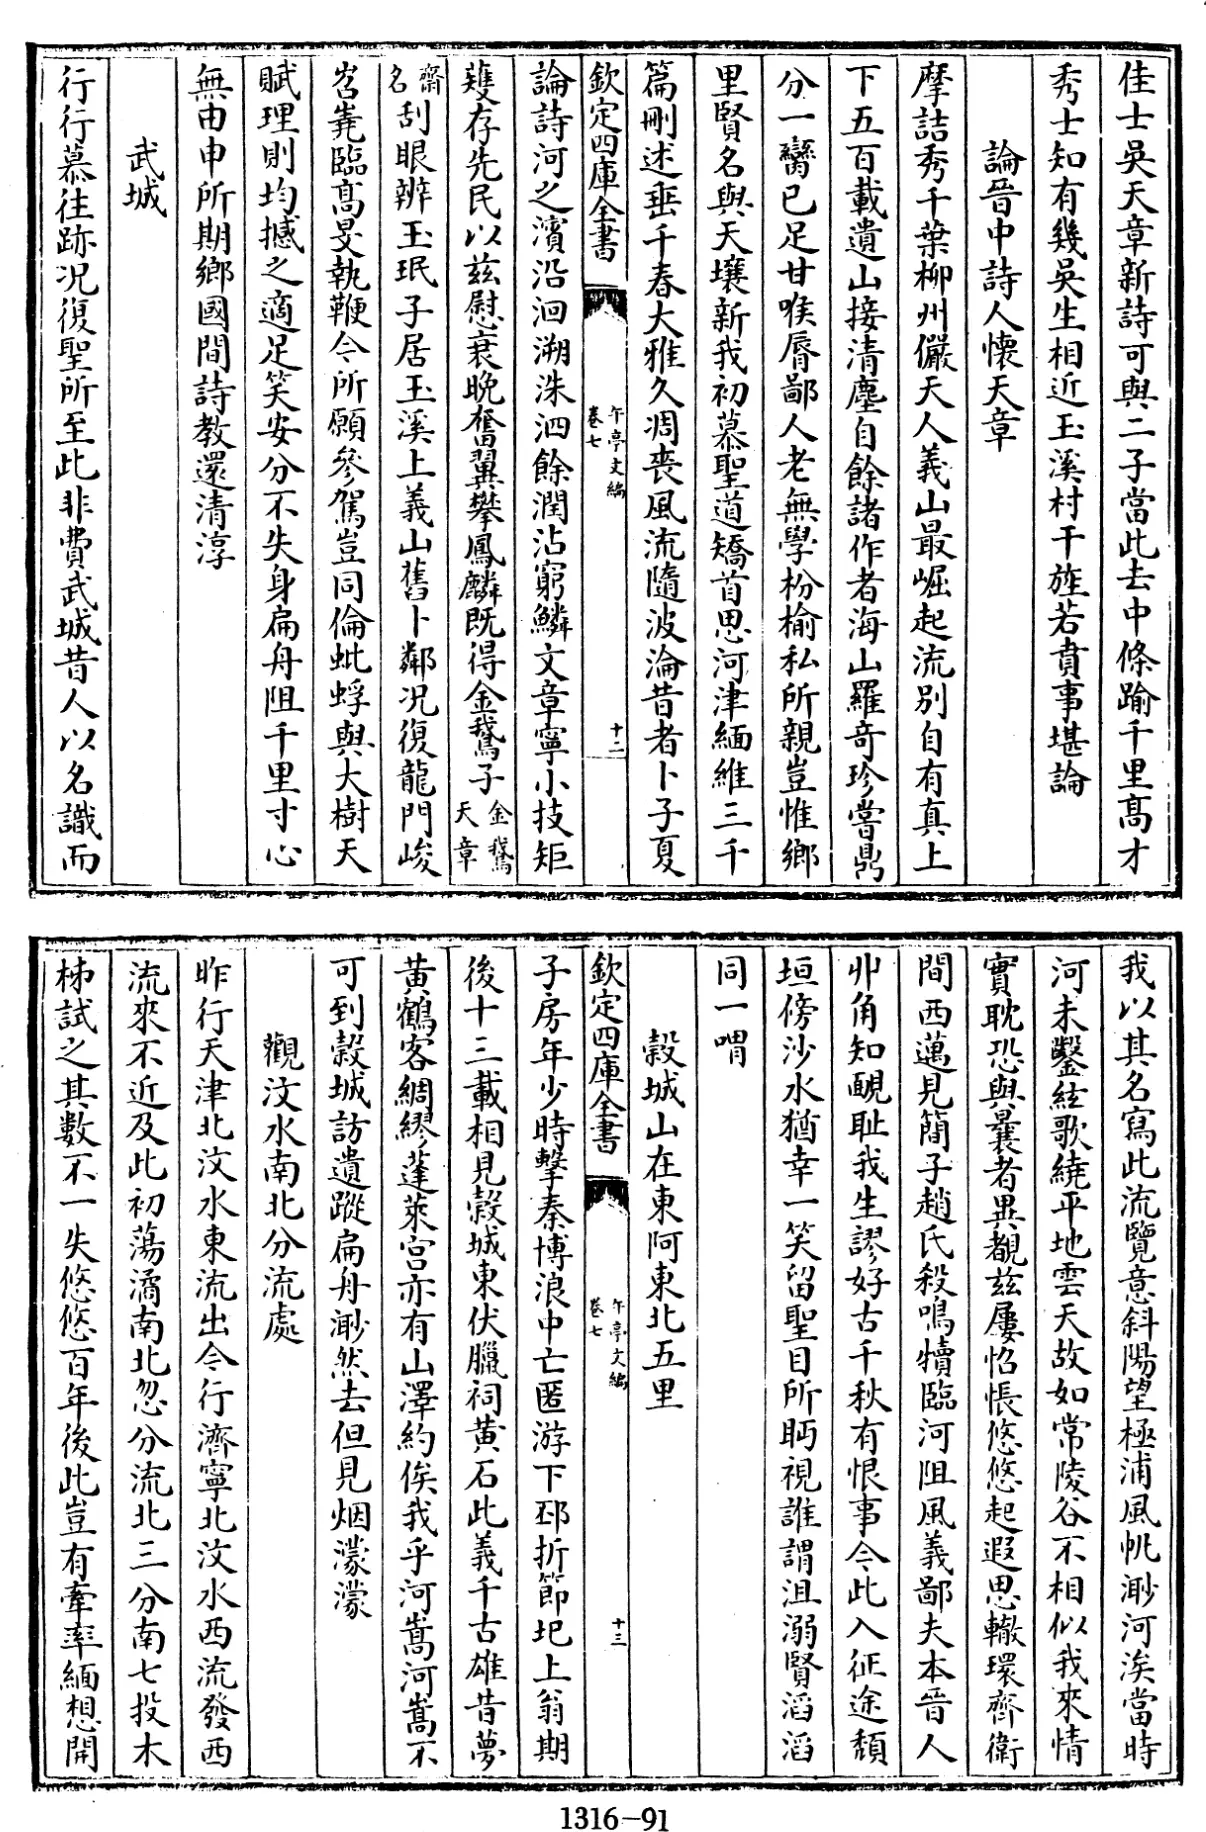 佳士吳天章新詩可與二子當此去中條踰千里髙才
秀士知有幾吳生相近玉溪村干旄若賁事堪論
論晉中詩人懷天章
摩詰秀千葉柳州儼天人義山最崛起流别自有真上
下五百載遺山接清塵自餘諸作者海山羅奇珍嘗鼎
分一臠已足甘喉脣鄙人老無學枌榆私所親豈惟鄉
里賢名與天壤新我初慕聖道矯首思河津緬維三千
篇刪述垂千春大雅久凋喪風流隨波淪昔者卜子夏
欽定四庫全書
午亭文編
卷七
十二
論詩河之濱沿洄溯洙泗餘潤沾窮鱗文章寧小技矩
矱存先民以兹慰衰晚奮翼攀鳳麟既得金鵞子金鵞天章
齋名刮眼辨玉珉子居玉溪上義山舊卜鄰况復龍門峻
岧嵬臨髙旻執鞭今所願參駕豈同倫蚍蜉與大樹天
賦理則均撼之適足笑安分不失身扁舟阻千里寸心
無由申所期鄉國間詩教還清淳
武城
行行慕往跡况復聖所至此非費武城昔人以名識而
我以其名寫此流覽意斜陽望極浦風帆渺河涘當時
河未鑿絃歌繞平地雲天故如常陵谷不相似我來情
實耽恐與曩者異覩兹屢怊悵悠悠起遐思轍環齊衛
間西邁見簡子趙氏殺鳴犢臨河阻風義鄙夫本晉人
丱角知靦耻我生謬好古千秋有恨事今此入征途頽
垣傍沙水猶幸一笑留聖目所眄視誰謂沮溺賢滔滔
同一喟
榖城山在東阿東北五里
欽定四庫全書
午亭文編
卷七
十三
子房年少時擊秦博浪中亡匿游下邳折節圯上翁期
後十三載相見榖城東伏臘祠黄石此義千古雄昔夢
黄鶴客綢繆蓬萊宫亦有山澤約俟我乎河嵩河嵩不
可到榖城訪遺蹤扁舟渺然去但見烟濛濛
觀汶水南北分流處
昨行天津北汶水東流出今行濟寧北汶水西流發西
流來不近及此初蕩潏南北忽分流北三分南七投木
柹試之其數不一失悠悠百年後此豈有牽率緬想開
1316-91